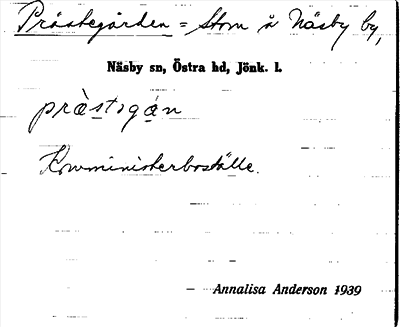 Prästegården = Stom å Näsby by,
Näsby sn, Östra hd, Jönk. l.
prästsgán
Komministerboställe.
– Annalisa Anderson 1939